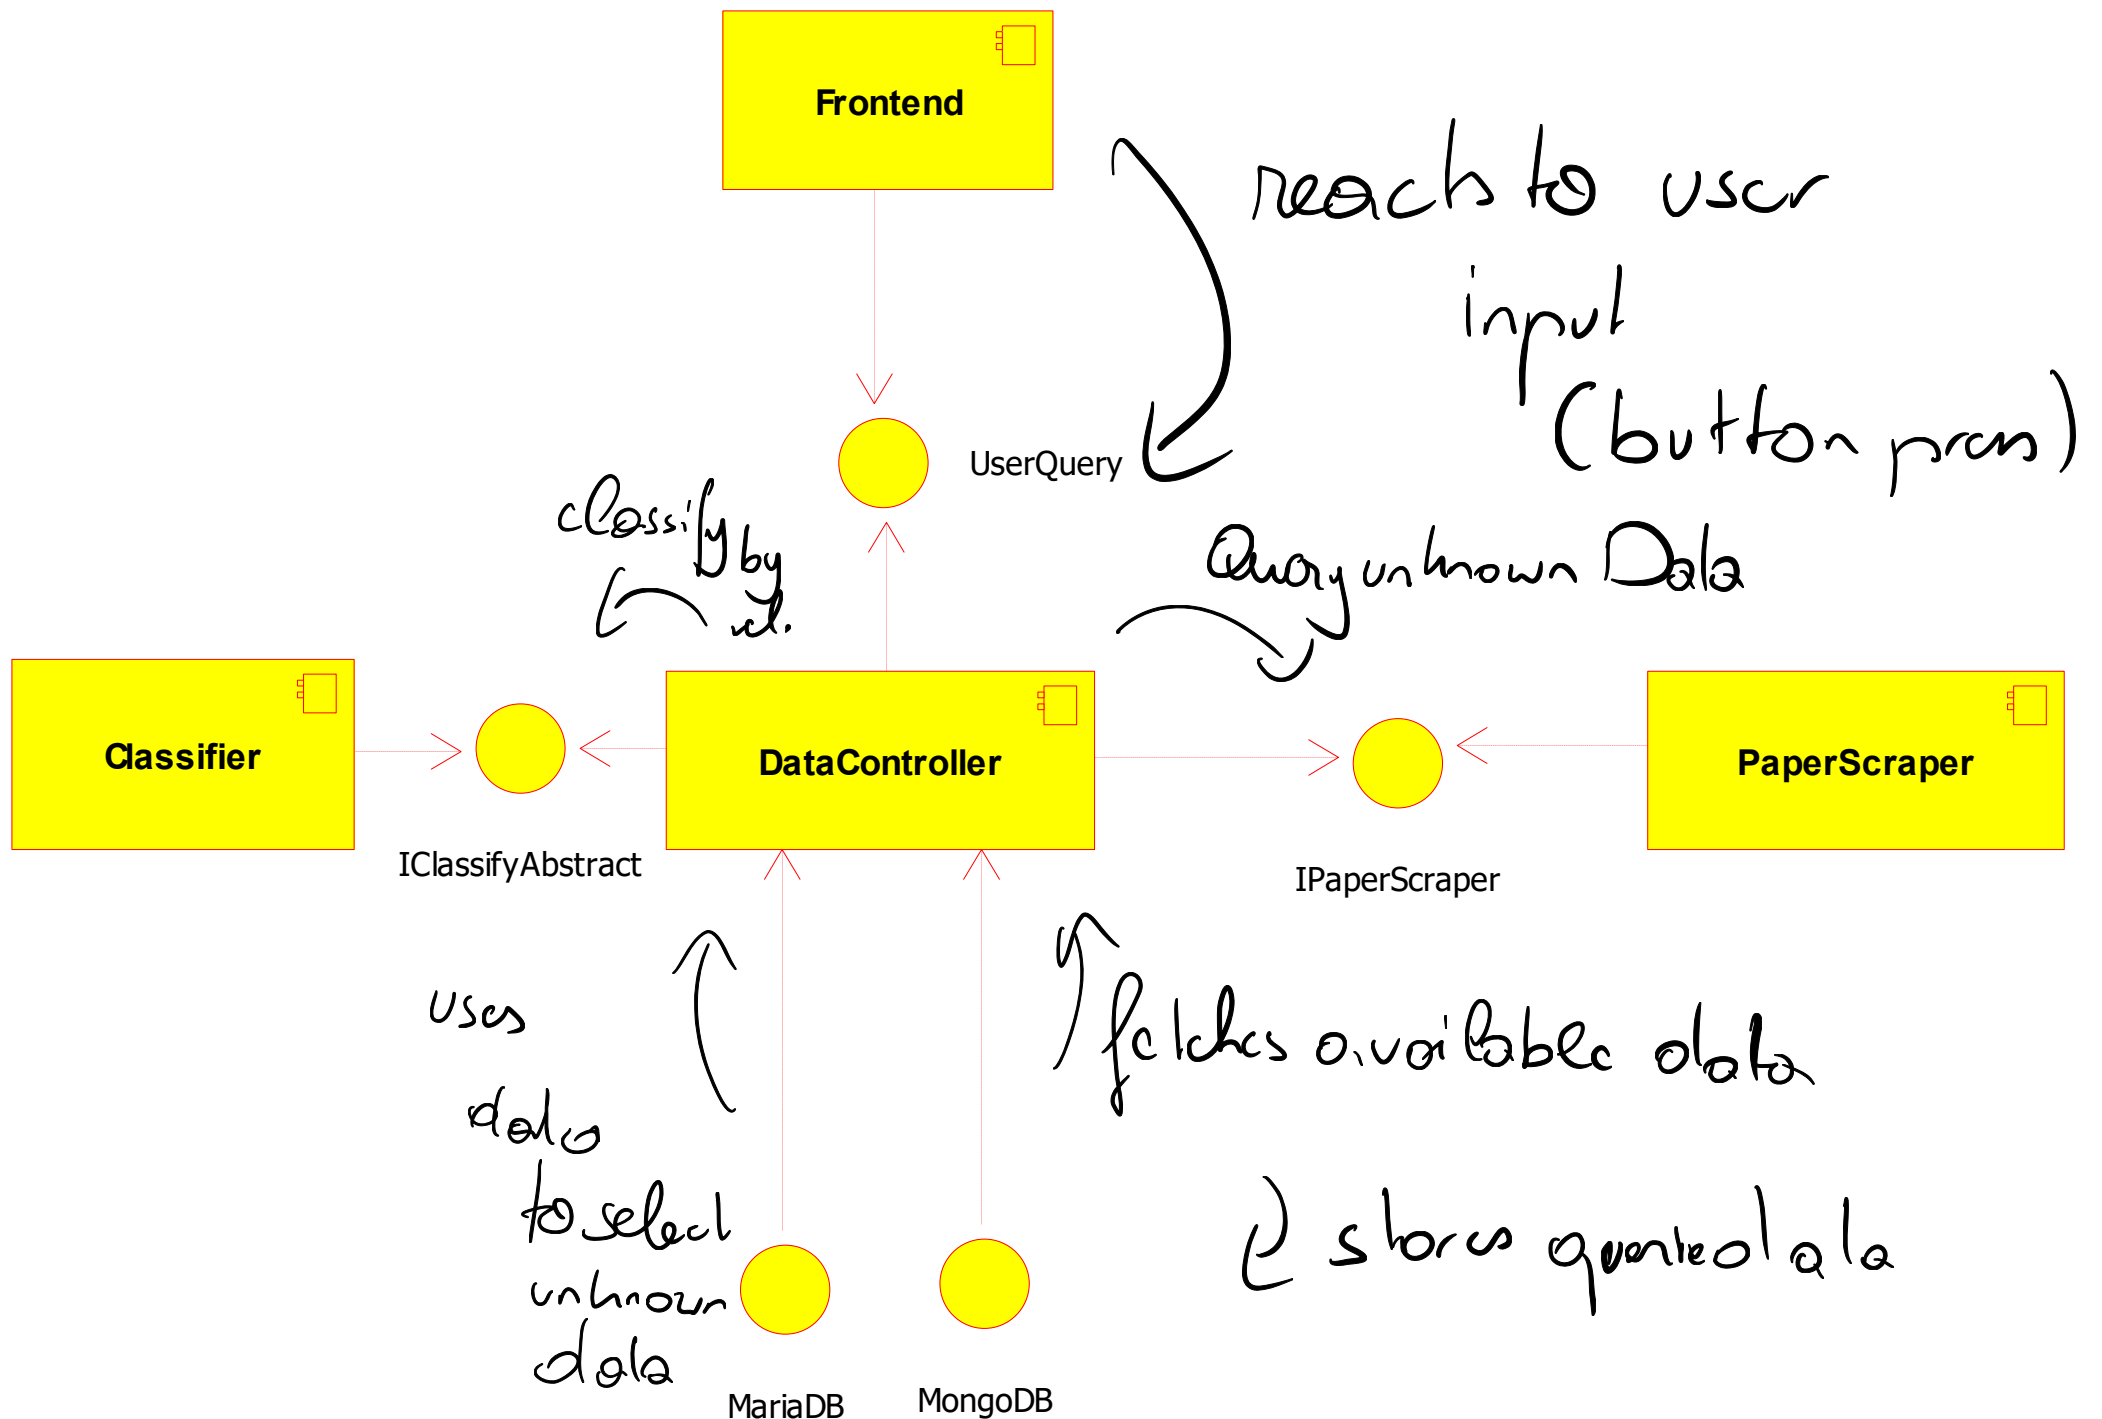 Frontend
reacts to user
input
(button press)
UserQuery
classify
by
Query unknown Data
Classifier
DataController
PaperScraper
IClassifyAbstract
IPaperScraper
uses
data
to select
unknown
data
fetches available data
stores queried data
MariaDB
MongoDB